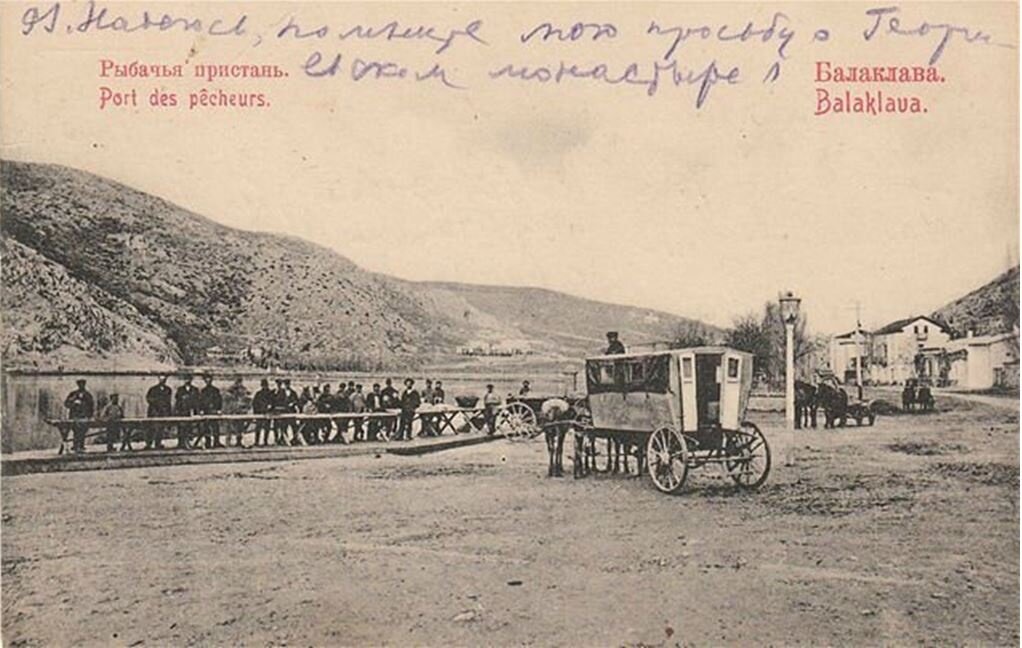 Надеюсь, помните мою просьбу о Георги-
евском монастыре!
Рыбачья пристань.
Port des pêcheurs.
Балаклава.
Balaklava.